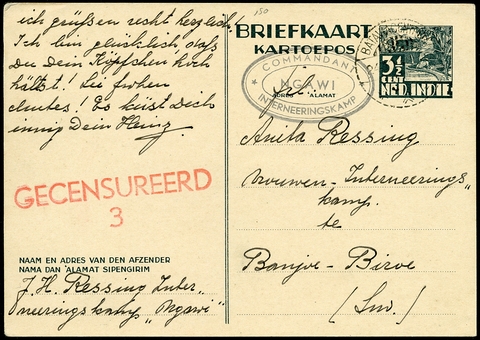 ich grüßen recht herzlich!
Ich bin glücklich, daß
Du Dein Köpfchen hoch
hältst! Sei frohen
Mutes! Es küsst Dich
innig Dein Heinz.
GECENSUREERD
3
NAAM EN ADRES VAN DEN AFZENDER
NAMA DAN ALAMAT SIPENGIRIM
J. H. Ressing Inter-
neeringskamp „Ngawi"
150
BRIEFKAART
KARTOEPOS
COMMANDANT
NGAWI
INTERNEERINGSKAMP
ADRES ALAMAT
3½
CENT
NED. INDIE
Anita Ressing
Vrouwen-Interneerings"
kamp.
te
Banjoe-Biroe
(Sm.)